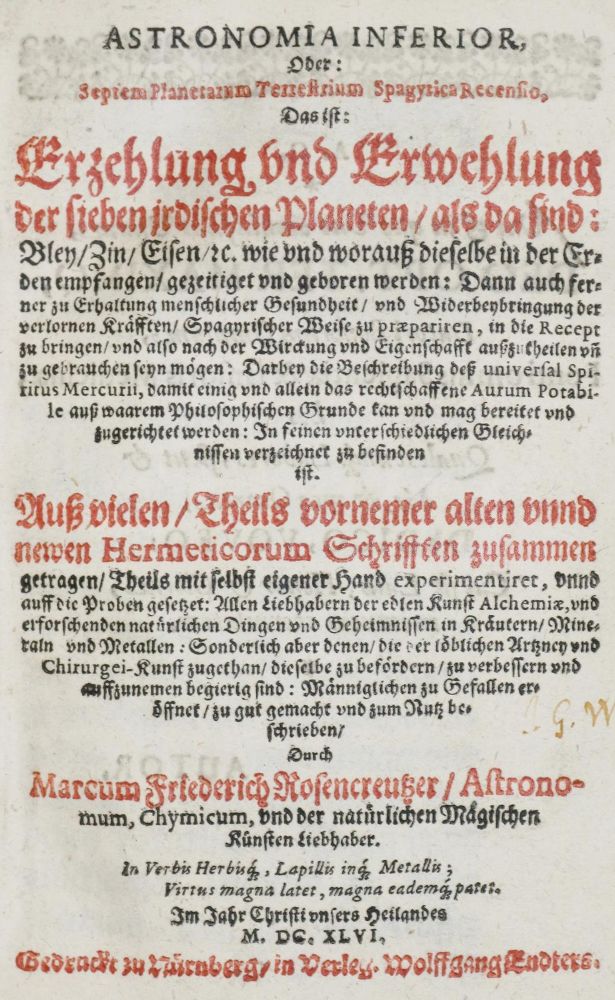 ASTRONOMIA INFERIOR,
Oder:
Septem Planetarum Terrestrium Spagyrica Recensio,
Das ist:
Erzehlung vnd Erwehlung
der sieben jrdischen Planeten / als da sind:
Bley / Zin / Eisen / ꝛc. wie vnd worauß dieselbe in der Er-
den empfangen / gezeitiget vnd geboren werden: Dann auch fer-
ner zu Erhaltung menschlicher Gesundheit / vnd Widerbeybringung der
verlornen Kräfften / Spagyrischer Weise zu præpariren, in die Recept
zu bringen / vnd also nach der Wirckung vnd Eigenschafft außzutheilen vñ
zu gebrauchen seyn mögen: Darbey die Beschreibung deß universal Spi-
ritus Mercurii, damit einig vnd allein das rechtschaffene Aurum Potabi-
le auß waarem Philosophischen Grunde kan vnd mag bereitet vnd
zugerichtet werden: In feinen vnterschiedlichen Gleich-
nissen verzeichnet zu befinden
ist.
Auß vielen / Theils vornemer alten vnnd
newen Hermeticorum Schrifften zusammen
getragen / Theils mit selbst eigener Hand experimentiret, vnnd
auff die Proben gesetzet: Allen Liebhabern der edlen Kunst Alchemiæ, vnd
erforschenden natürlichen Dingen vnd Geheimnissen in Kräutern / Mine-
raln vnd Metallen: Sonderlich aber denen / die der löblichen Artzney vnd
Chirurgei-Kunst zugethan / dieselbe zu befördern / zu verbessern vnd
auffzunemen begierig sind: Männiglichen zu Gefallen er-
öffnet / zu gut gemacht vnd zum Nutz be-
schrieben /
Durch
Marcum Friederich Rosencreutzer / Astrono-
mum, Chymicum, vnd der natürlichen Mägischen
Künsten Liebhaber.
In Verbis Herbisq́;, Lapillis inq́; Metallis;
Virtus magna latet, magna eademq́; patet.
Im Jahr Christi vnsers Heilandes
M. DC. XLVI.
Gedruckt zu Nürnberg, in Verleg. Wolffgang Endters.
G. W